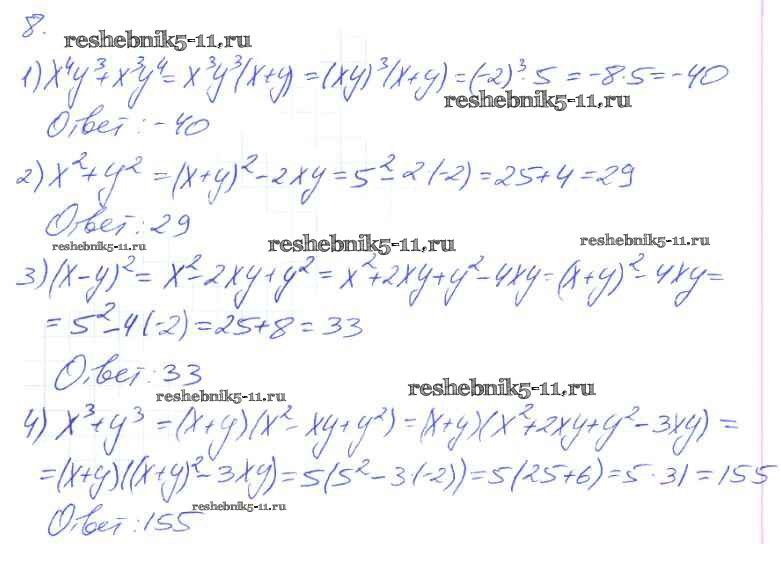 8.
reshebnik5-11.ru
1) x⁴y³+x³y⁴=x³y³(x+y)=(xy)³(x+y)=(-2)³·5=-8·5=-40
reshebnik5-11.ru
Ответ: -40
2) x²+y²=(x+y)²-2xy=5²-2·(-2)=25+4=29
Ответ: 29
reshebnik5-11.ru reshebnik5-11.ru reshebnik5-11.ru
3) (x-y)²=x²-2xy+y²=x²+2xy+y²-4xy=(x+y)²-4xy=
=5²-4(-2)=25+8=33
Ответ: 33
reshebnik5-11.ru reshebnik5-11.ru
4) x³+y³=(x+y)(x²-xy+y²)=(x+y)(x²+2xy+y²-3xy)=
=(x+y)((x+y)²-3xy)=5(5²-3(-2))=5(25+6)=5·31=155
reshebnik5-11.ru
Ответ: 155